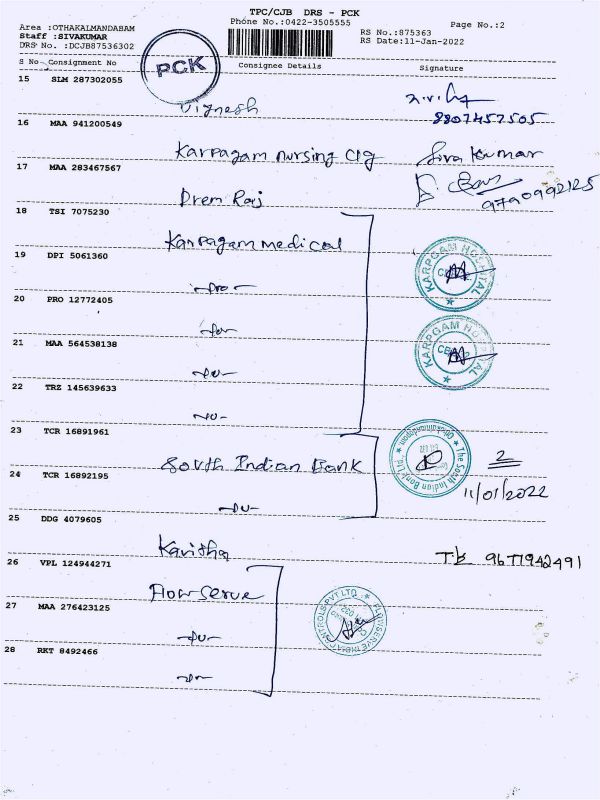 TPC/CJB DRS - PCK
Phone No.:0422-3505555
Page No.:2
Area :OTHAKALMANDABAM
Staff :SIVAKUMAR
DRS No. :DCJB87536302
RS No.:875363
RS Date:11-Jan-2022
S No Consignment No Consignee Details Signature
PCK
15 SLM 287302055
Vignesh
8807457505
16 MAA 941200549
Karpagam nursing clg Siva Kumar
17 MAA 283467567
Prem Raj 9790992125
18 TSI 7075230
Karpagam medical
19 DPI 5061360
KARPGAM HOSPITAL
20 PRO 12772405
21 MAA 564538138
KARPGAM HOSPITAL
22 TRZ 145639633
23 TCR 16891961
South Indian Bank
The South Indian Bank Ltd.
2
11/01/2022
24 TCR 16892195
25 DDG 4079605
Kavitha 9677942491
26 VPL 124944271
Flowserve
FLOWSERVE INDIA CONTROLS PVT LTD
27 MAA 276423125
28 RKT 8492466